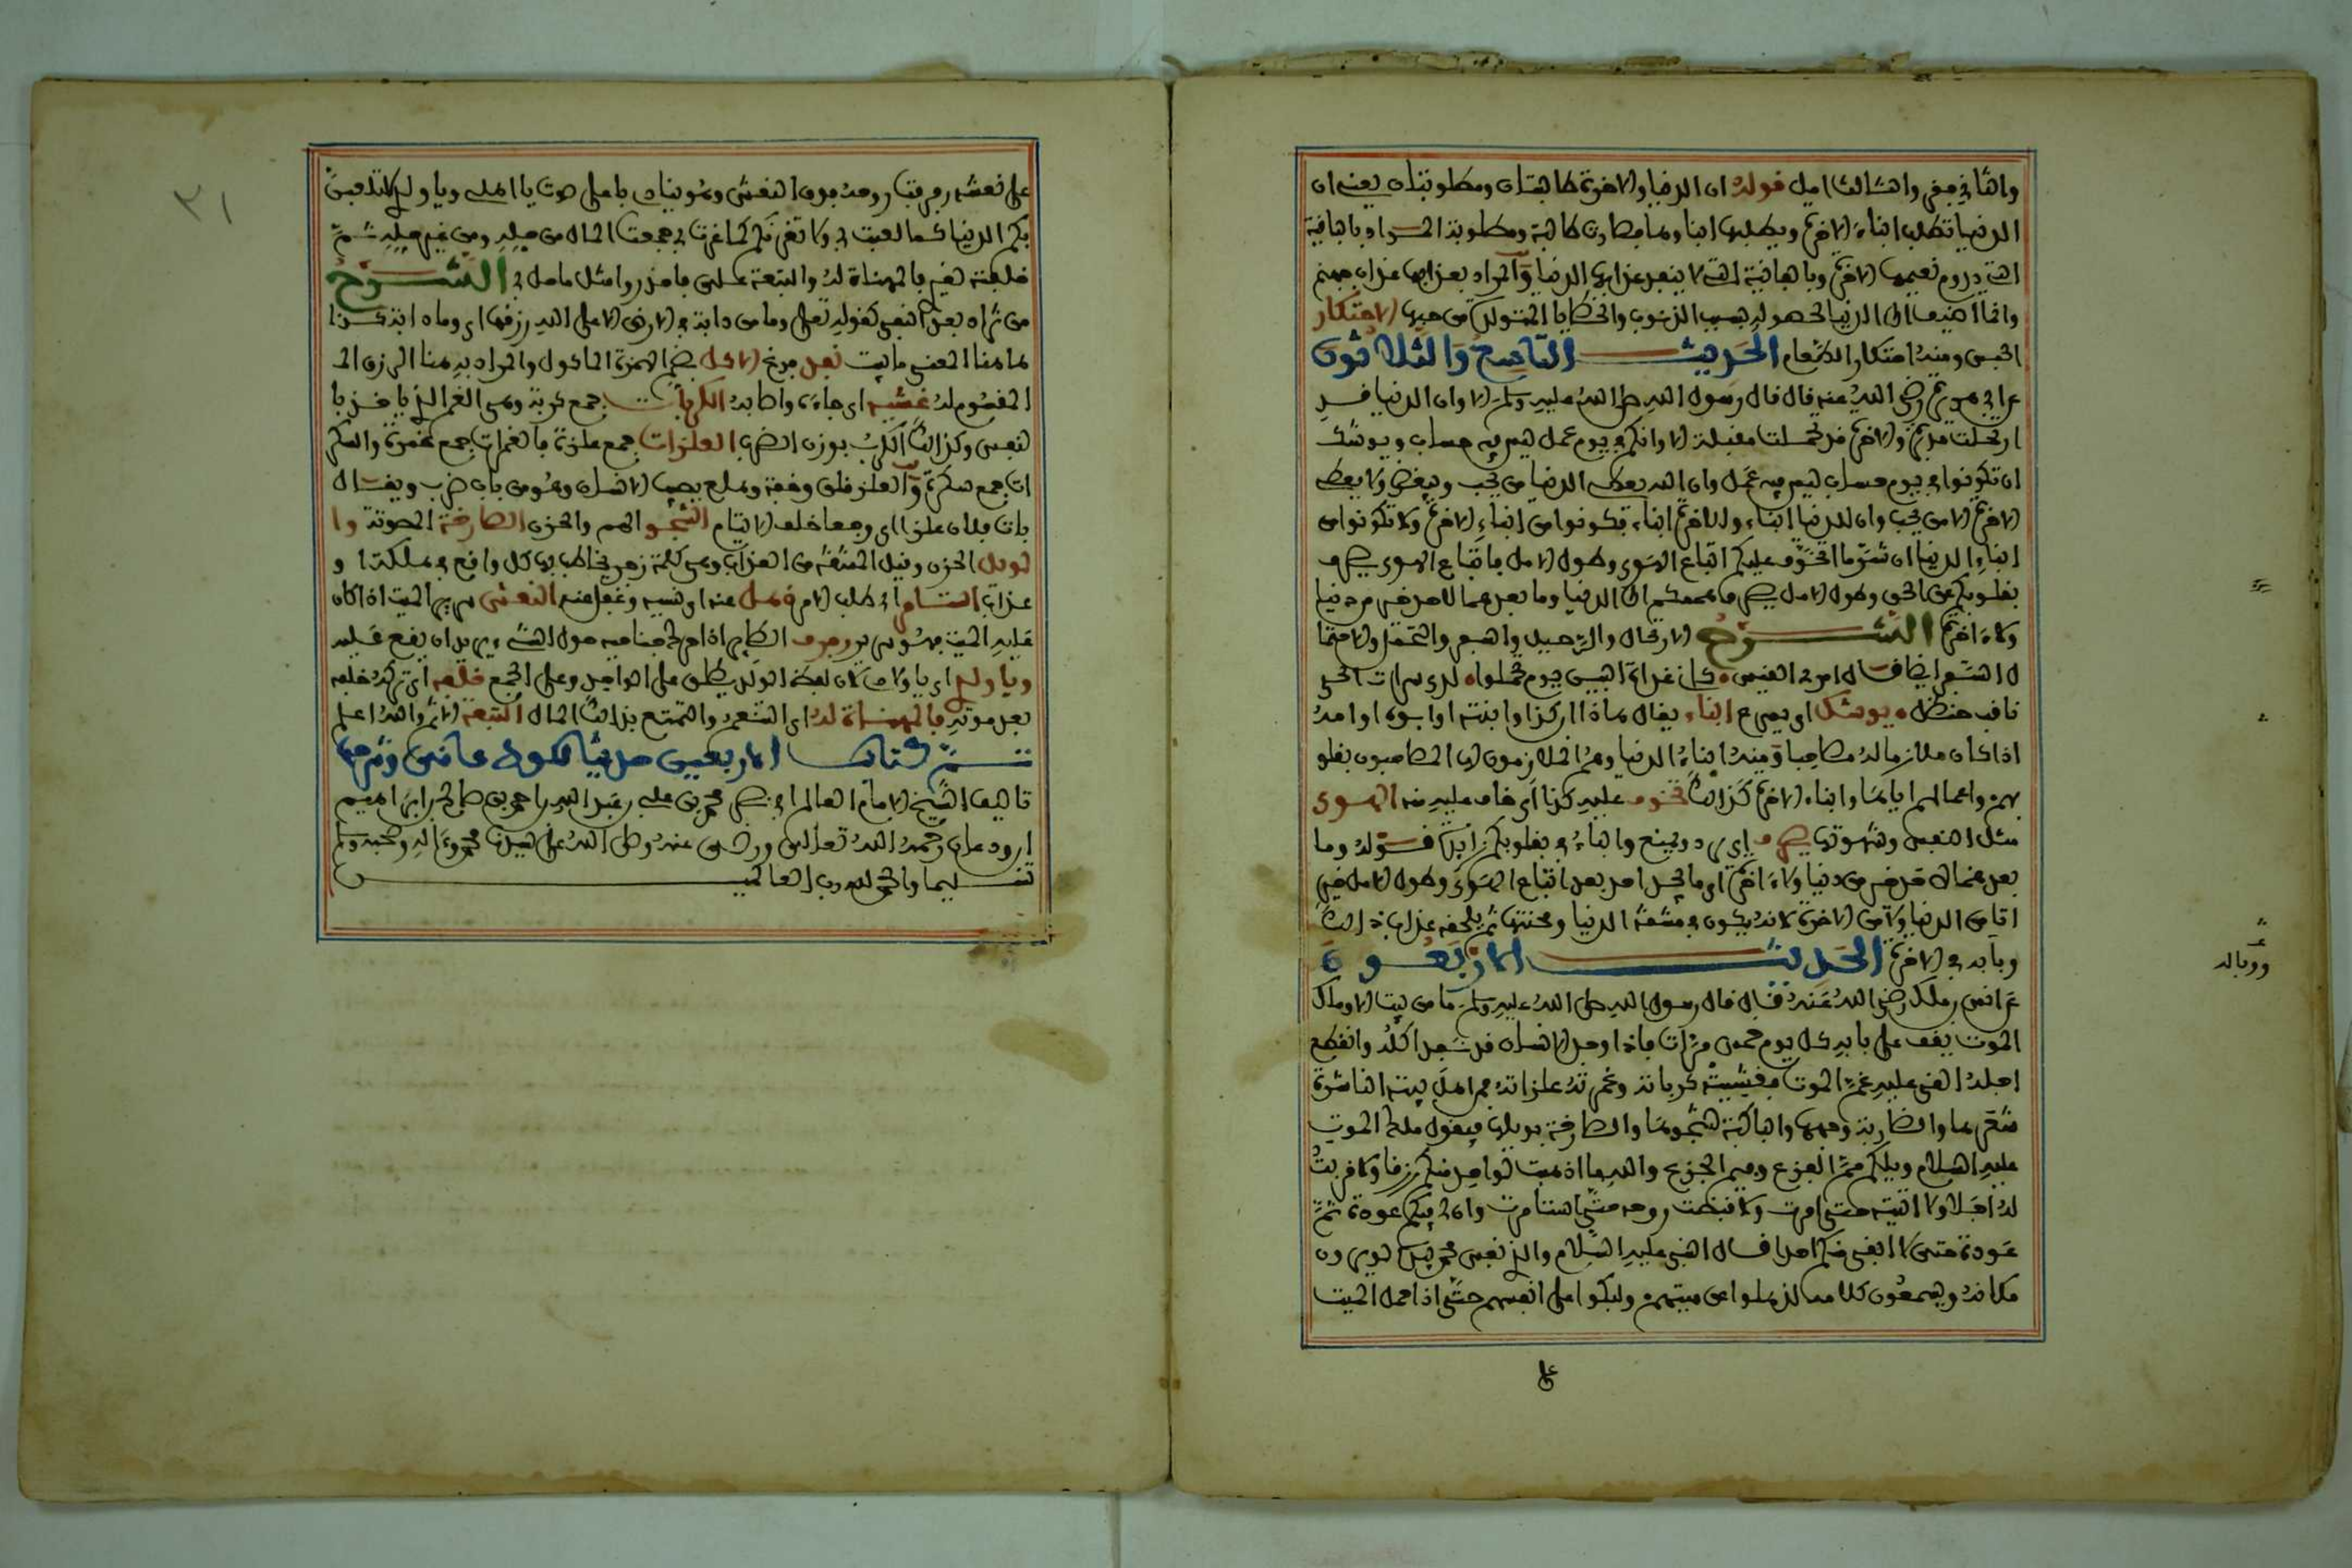 والثاني صغير والثالث اصل قوله ان الدنيا والاخرة طالبتان ومطلوبتان يعني ان
الدنيا تطلب ابناء الاخرة ويطلبها ابناؤها فصارت طالبة ومطلوبة المراد بالباقية
التي يدوم نعيمها الاخرة وبالفانية التي لا ينفد عذابها الدنيا والمراد بعذابها عذاب جهنم
وانما اضيف الى الدنيا لحصوله بسبب الذنوب والخطايا المتولدة من حبها الاحتكار
الحبس ومنه احتكار الطعام الحديث التاسع والثلاثون
عن ابي هريرة رضي الله عنه قال قال رسول الله صلى الله عليه وسلم الا وان الدنيا قد
ارتحلت مدبرة والاخرة قد تحملت مقبلة الا وانكم في يوم عمل ليس فيه حساب ويوشك
ان تكونوا في يوم حساب ليس فيه عمل وان الله يعطي الدنيا من يحب ويبغض ولا يعطي
الاخرة الا من يحب وان للدنيا ابناء وللاخرة ابناء فكونوا من ابناء الاخرة ولا تكونوا من
ابناء الدنيا ان شر ما اتخوف عليكم اتباع الهوى وطول الامل فاتباع الهوى يصرف
بقلوبكم عن الحق وطول الامل يصرف هممكم الى الدنيا وما بعدهما لاحد خير من دنيا
ولا اخرة الشرح الارتحال والرحيل والسير والتحمل والاحتما
ل السير ايضا قال امرؤ القيس كاني غداة البين يوم تحملوا لدى سمرات الحي
ناقف حنظل يوشك اي يسرع ابناء يقال هذا ابن كذا وابنته او ابوه او امه
اذا كان ملازما له مصاحبا ومنه ابناء الدنيا وهم الملازمون لها المصاحبون بقلو
بهم واعمالهم اياها وابناء الاخرة كذلك تخوف عليه كذا اي خاف عليه منه الهوى
ميل النفس وشهوتها يصرف اي يرد ويمنع والباء في بقلوبكم زائدة قوله وما
بعدهما لاحد خير من دنيا ولا اخرة اي ما يحصل لاحد بعد اتباع الهوى وطول الامل خير
لا من الدنيا ولا من الاخرة لانه يكون في مشقة الدنيا ومحنتها ثم يلحقه عذاب ذلك
وباله في الاخرة الحديث الاربعون
عن انس بن ملك رضي الله عنه قال قال رسول الله صلى الله عليه وسلم ما من بيت الا وملك
الموت يقف على بابه كل يوم خمس مرات فاذا وجد الانسان قد نفد اكله وانقطع
اجله القى عليه غم الموت فغشيته كرباته وغمرته علزاته فمن اهل بيته الناشرة
شعرها والضاربة وجهها والباكية لشجوها والصارخة بويلها فيقول ملك الموت
عليه السلام ويلكم مم الفزع وفيم الجزع والله ما اذهبت لواحد منكم رزقا ولا قربت
له اجلا ولا اتيته حتى امرت ولا قبضت روحه حتى استامرت وان لي فيكم عودة ثم
عودة حتى لا ابقي منكم احدا قال النبي عليه السلام والذي نفس محمد بيده لو يرون
مكانه ويسمعون كلامه لذهلوا عن ميتهم ولبكوا على انفسهم حتى اذا حمل الميت
على
ووباله
٣١
على نعشه رفرفت روحه فوق النعش وهو ينادي باعلى صوت يا اهلي ويا ولدي لا تلعبن
بكم الدنيا كما لعبت بي ولا تغرنكم كما غرت بي جمعت المال من حله ومن غير حله ثم
خلفته لغيري فالمهناة له والتبعة علي فاحذروا مثل ما حل بي الشرح
من زائدة بعد النفي كقوله تعلى وما من دابة في الارض الا على الله رزقها اي وما دابة كذا
ما هنا المعنى ما بيت نفد فرغ الاكل بضم الهمزة الماكول والمراد به هنا الرزق الـ
المقسوم له غشيه اي جاءه واصابه الكربات جمع كربة وهي الغم الذي ياخذ با
لنفس وكذلك الكرب بوزن الضرب العلزات جمع علزة كالغمرات جمع غمرة والسكر
ات جمع سكرة والعلز قلق وخفة وهلع يصيب الانسان وهو من باب ضرب ويقال
بات فلان علزا اي وجعا خلف الانام الشجو الهم والحزن الصارخة المصوتة وا
لويل الحزن وقيل المشقة من العذاب وهي كلمة زجر يخاطب بها كل واقع في هلكة او
عذاب استامر اي طلب الامر ذهل عنه اي نسيه وغفل عنه النعش سرير الميت اذا كان
عليه الميت فهو سرير رفرف الطاير اذا حرك جناحيه حول الشيء يريد ان يقع عليه
ويا ولدي اي يا اولادي لان لفظ الولد يطلق على الواحد وعلى الجمع خلفه اي تركه خلفه
بعد موته فالمهناة له اي التنعم والتمتع بذلك المال التبعة الاثم والله اعلم
تم كتاب الاربعين حديثا بحول الله وقوته وشرحها
تاليف الشيخ الامام العالم ابي نصر محمد بن علي بن عبد الله بن احمد بن صالح بن ابراهيم
بن ودعان رحمه الله تعالى ورضي عنه وصلى الله على سيدنا محمد وءاله وصحبه وسلم
تسليما والحمد لله رب العالمين